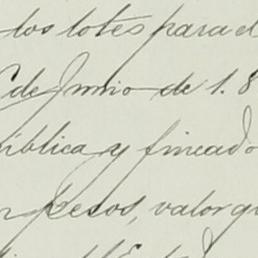 los lotes para el
de Junio de 1.8
ública y fincado
pesos, valor qu